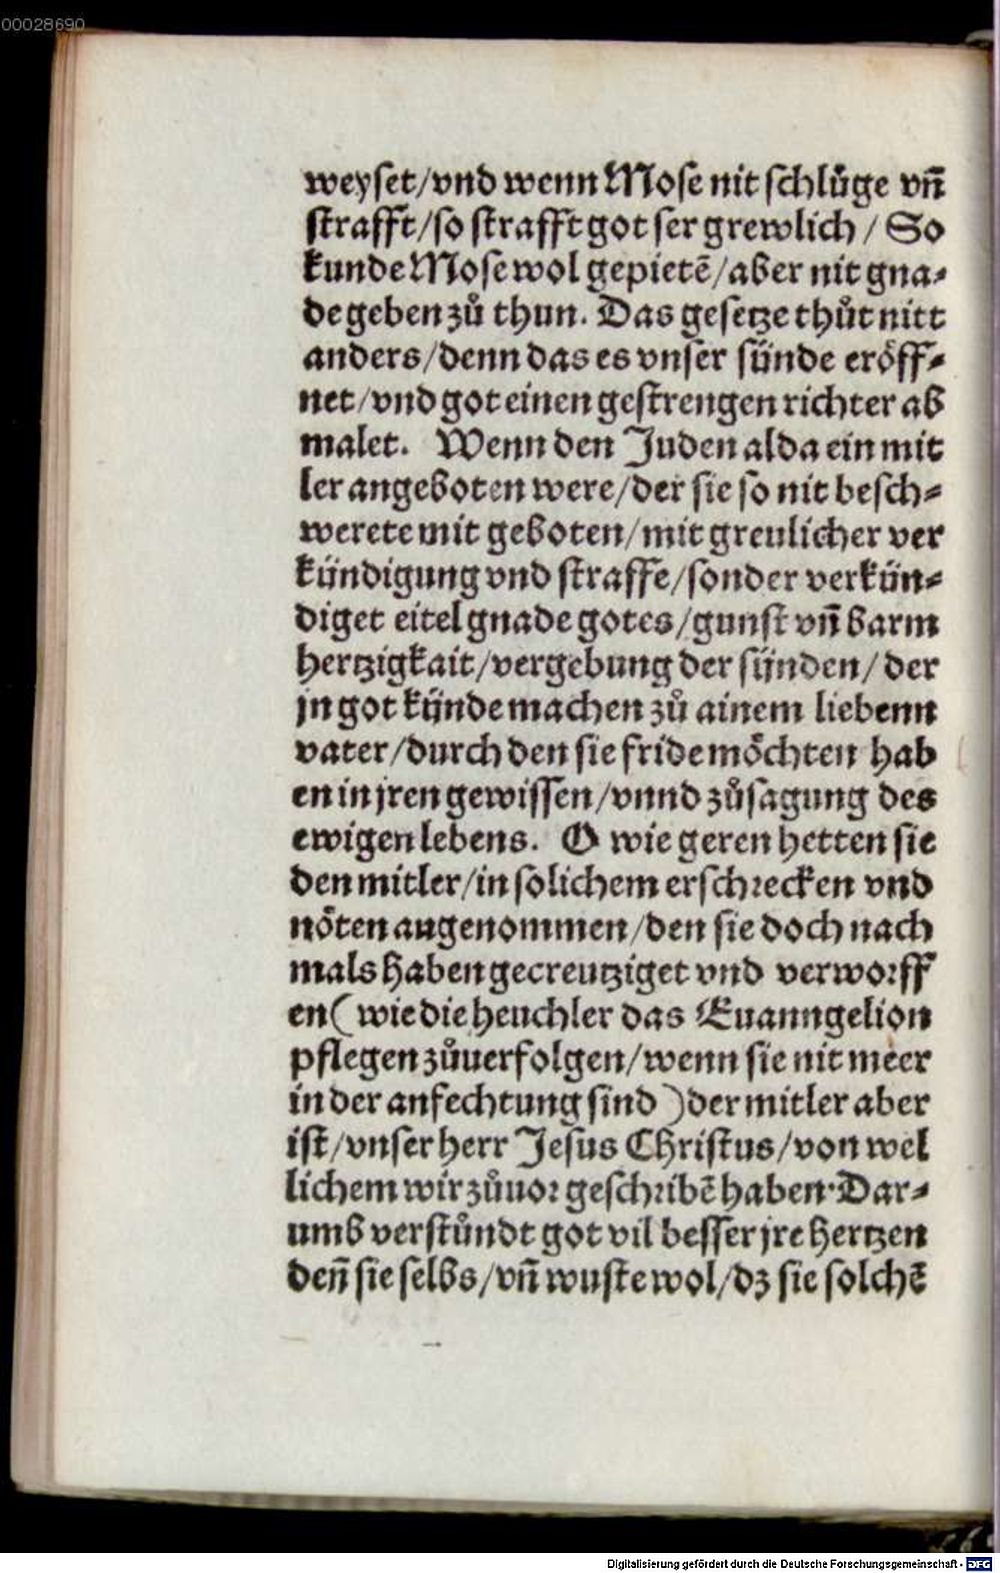 00028690
weyset/vnd wenn Mose nit schlůge vñ
strafft/so strafft got ser grewlich/ So
kunde Mose wol gepietẽ/aber nit gna⸗
de geben zů thun. Das gesetze thůt nitt
anders/denn das es vnser sünde eröff⸗
net/vnd got einen gestrengen richter ab
malet. Wenn den Juden alda ein mit
ler angeboten were/der sie so nit besch⸗
werete mit geboten/mit greulicher ver
kündigung vnd straffe/sonder verkün⸗
diget eitel gnade gotes/gunst vñ barm
hertzigkait/vergebung der sünden/ der
jn got künde machen zů ainem liebenn
vater/durch den sie fride möchten hab
en in jren gewissen/vnnd zůsagung des
ewigen lebens. O wie geren hetten sie
den mitler/in solichem erschrecken vnd
nöten augenommen/den sie doch nach
mals haben gecreutziget vnd verworff
en( wie die heuchler das Euanngelion
pflegen zůuerfolgen/wenn sie nit meer
in der anfechtung sind )der mitler aber
ist/vnser herr Jesus Christus/von wel
lichem wir zůuor geschribẽ haben·Dar⸗
umb verstůndt got vil besser jre hertzen
deñ sie selbs/vñ wuste wol/dz sie solchẽ
Digitalisierung gefördert durch die Deutsche Forschungsgemeinschaft - DFG